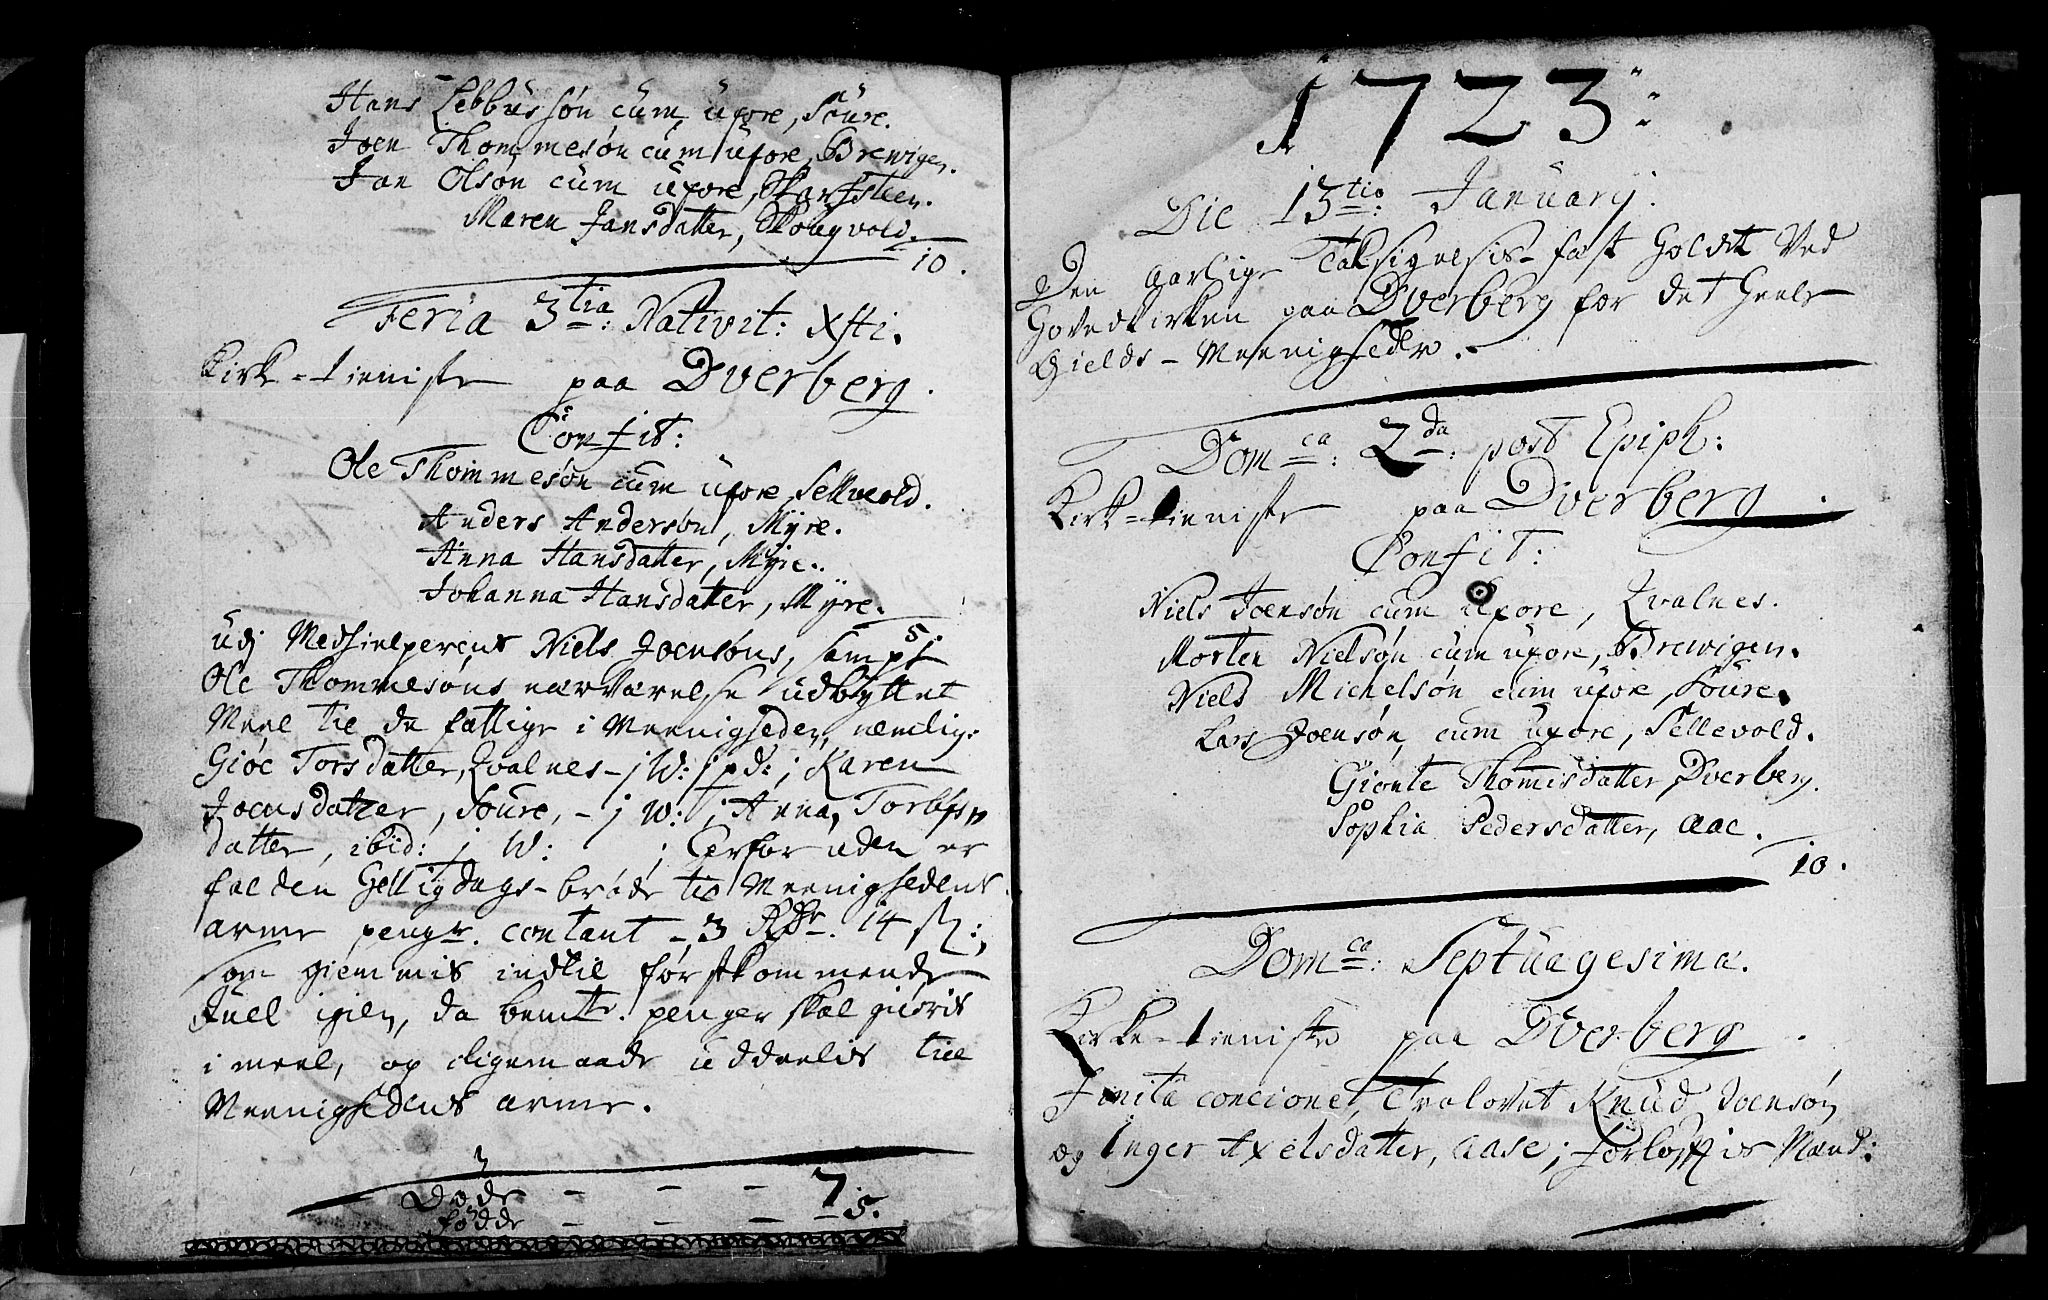 Hans Lebbussøn cum uxore, Sture.
Joen Thommesøn cum uxore, Brewigen.
Jan Olsøn cum uxore, Skarfsteen.
Maren Jansdatter, Skougvold.
10.
Feria 3tia: Nativit: Xsti.
Kirke-tieniste paa Dverberg.
Confit:
Ole Thommesøn cum uxore, Sellevold.
Anders Andersøn, Myre.
Anna Hansdatter, Myre.
Johanna Hansdatter, Myre.
5.
Udj Medhielperens Niels Joensøns, sampt
Ole Thommesøns nærværelse udbyttet
Meel til de fattige i Meenigheden, nemlig:
Giøe Torsdatter, Qvalnes - j W: j pd: ; Karen
Joensdatter, Soure, - j W: ; Anna
datter, ibid: j W: ; Derfor uden er
falden Helligdags-brøde til Meenighedens
arme penge contant - 3 Rdr. 14 sz:,
som giemmis indtil førstkommende
Juel igien, da bemte. penger skal giøris
i meel, og ligemaade uddeelis till
Meenighedens arme.
Døde - - - 7
fødde - - - 15.
1723:
Die 13tio: January.
Den aarlige Taksigelsis-fest Holdt Ved
Hovedkirken paa Dverberg for det Heele
Gields-Meenigheder.
Domca: 2da: post Epiph:
Kirke-tieniste paa Dverberg.
Confit:
Niels Joensøn cum uxore, Qvalnes.
Morten Nielsøn cum uxore, Brewigen.
Niels Michelsøn cum uxore, Soure.
Lars Joensøn cum uxore, Sellevold.
Gionte Thomisdatter, Dverberg.
Sophia Pedersdatter, Aae.
10.
Domca: Septuagesima.
Kirke-tieniste paa Dverberg.
Finita concione, Trolovet Knud Joensøn
og Inger Axelsdatter, Aase; Forlofftis Mænd: